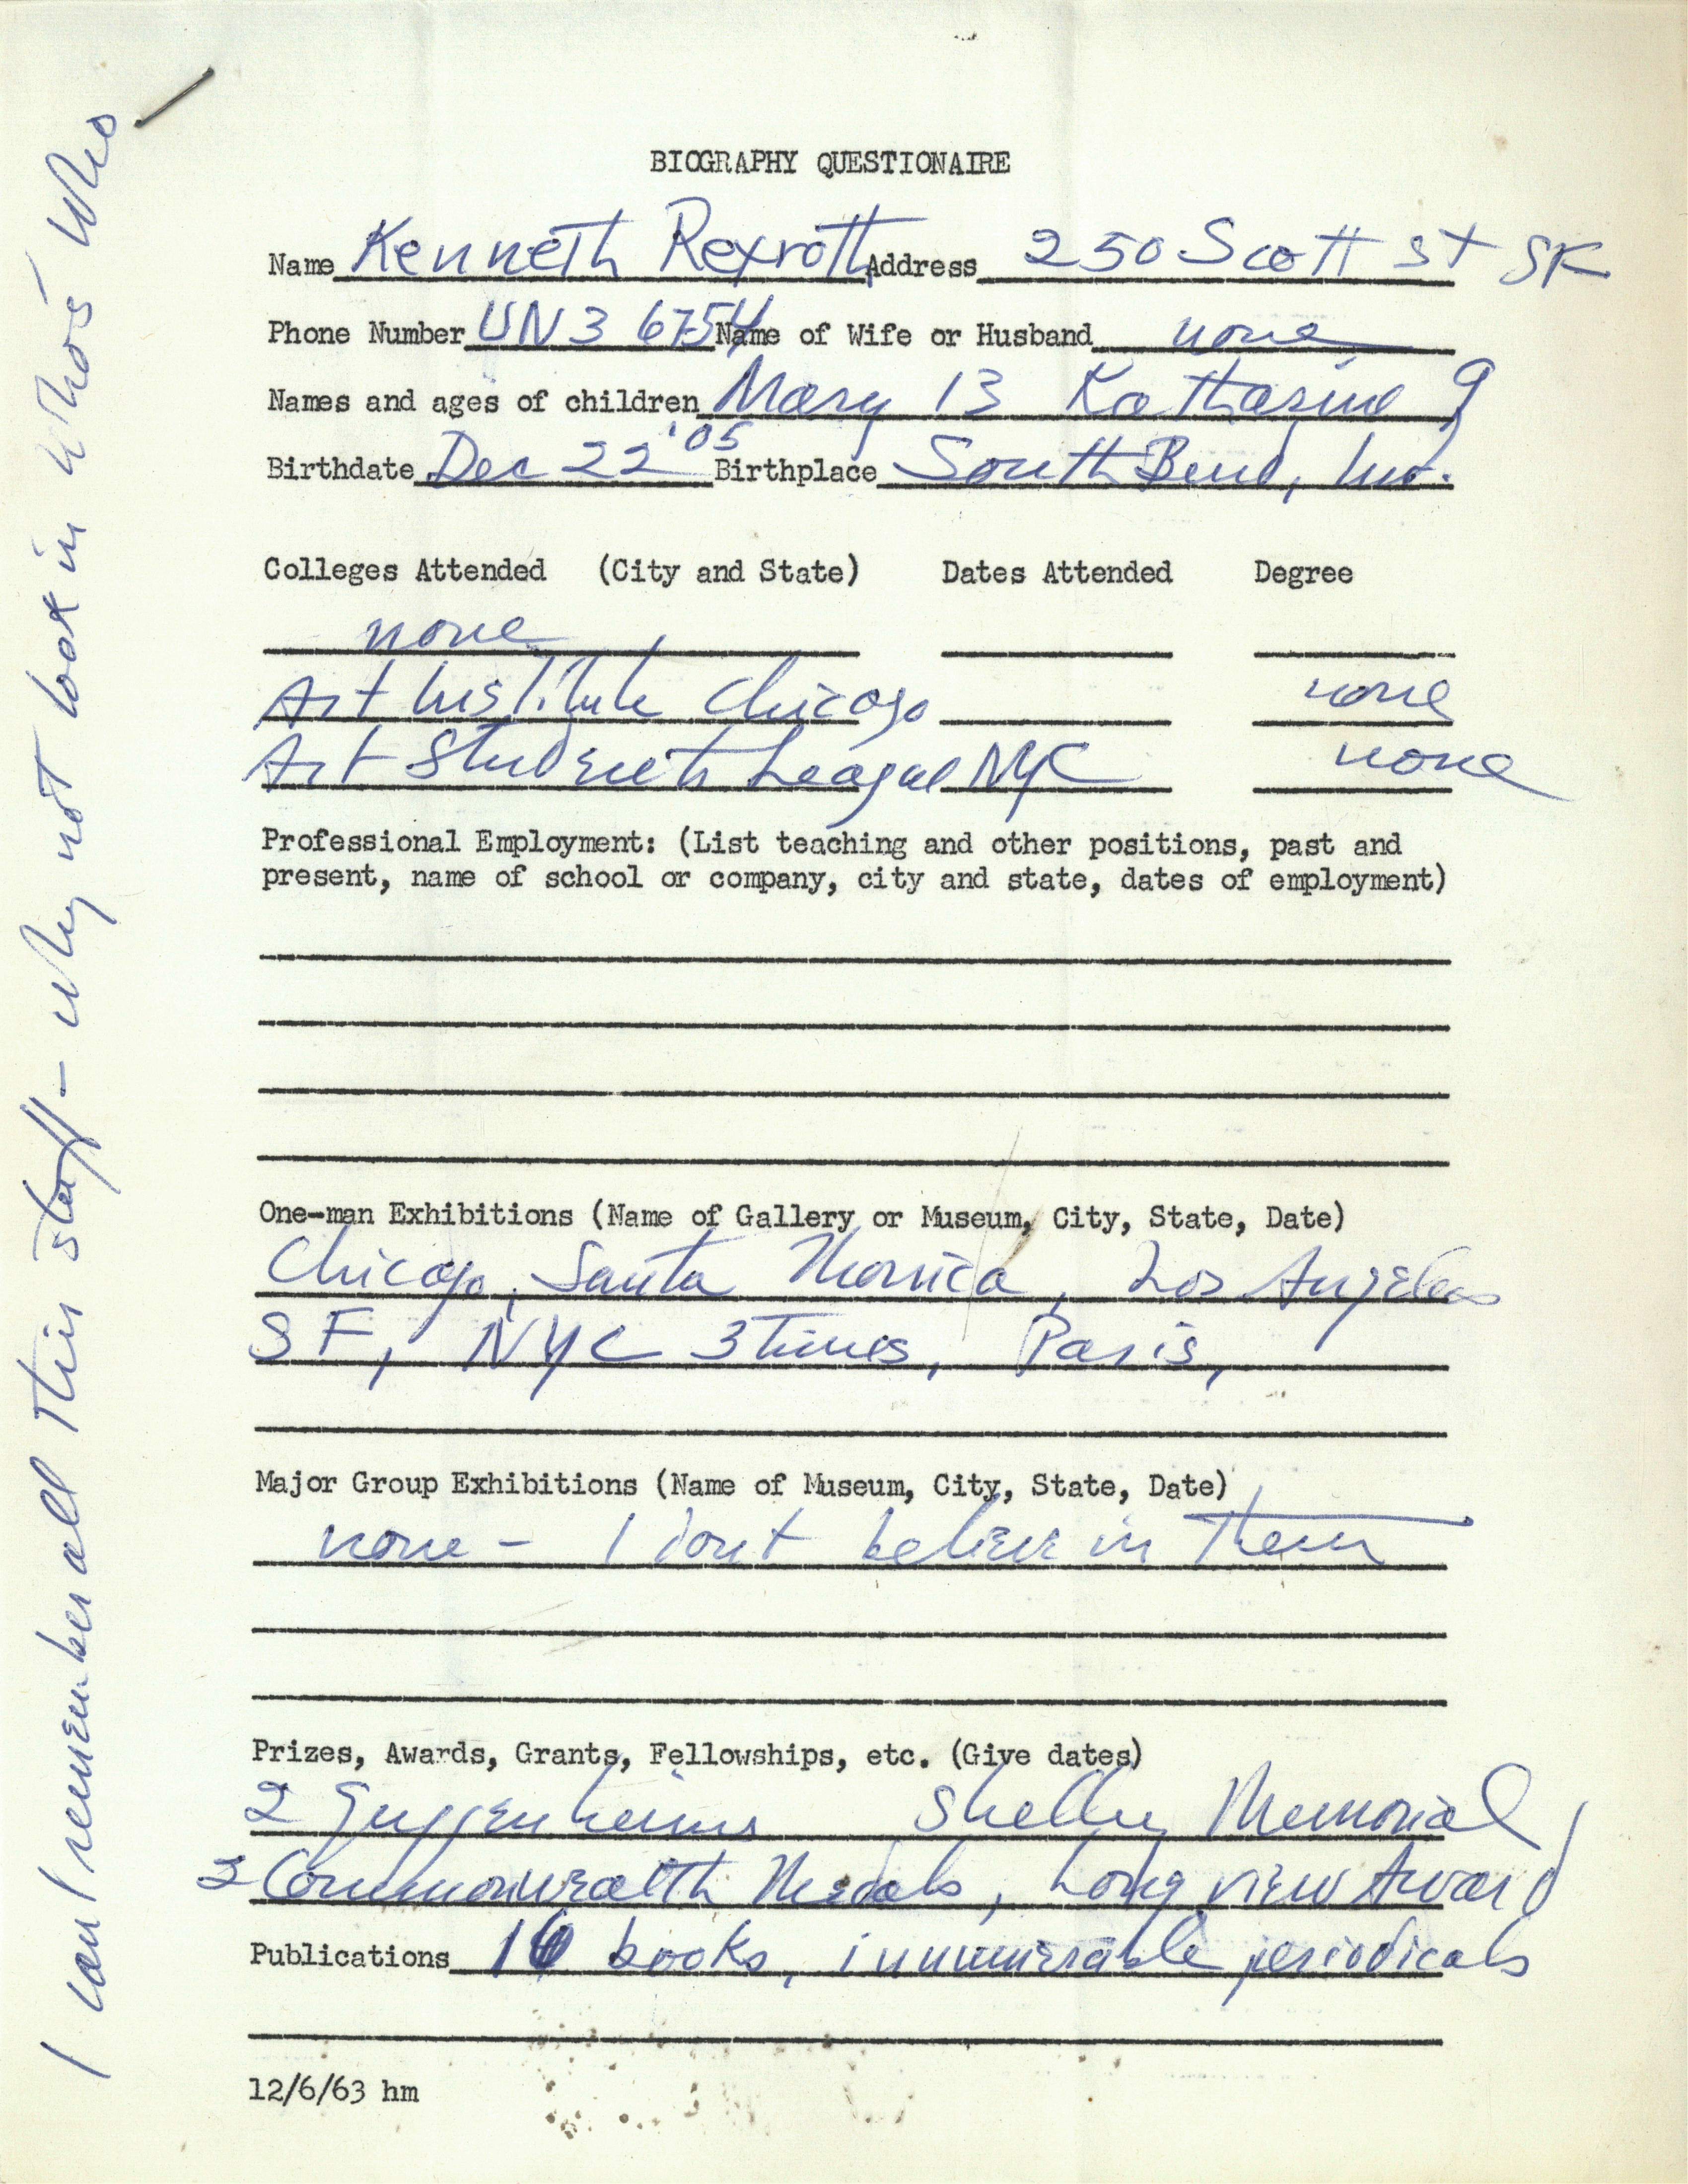 BIOGRAPHY QUESTIONAIRE
Name Kenneth Rexroth Address 250 Scott St SF
Phone Number UN3 6754 Name of Wife or Husband none
Names and ages of children Mary 13 Katharine 9
Birthdate Dec 22 '05 Birthplace South Bend, Ind.
Colleges Attended (City and State) Dates Attended Degree
none
Art Institute Chicago none
Art Students League NYC none
Professional Employment: (List teaching and other positions, past and
present, name of school or company, city and state, dates of employment)
One-man Exhibitions (Name of Gallery or Museum, City, State, Date)
Chicago, Santa Monica, Los Angeles
SF, NYC 3 times, Paris,
Major Group Exhibitions (Name of Museum, City, State, Date)
none - I dont believe in them
Prizes, Awards, Grants, Fellowships, etc. (Give dates)
2 Guggenheims Shelley Memorial,
Commonwealth Medals, Longview Award
Publications books, innumerable periodicals
12/6/63 hm
I cant remember all this stuff - why not look in who's who